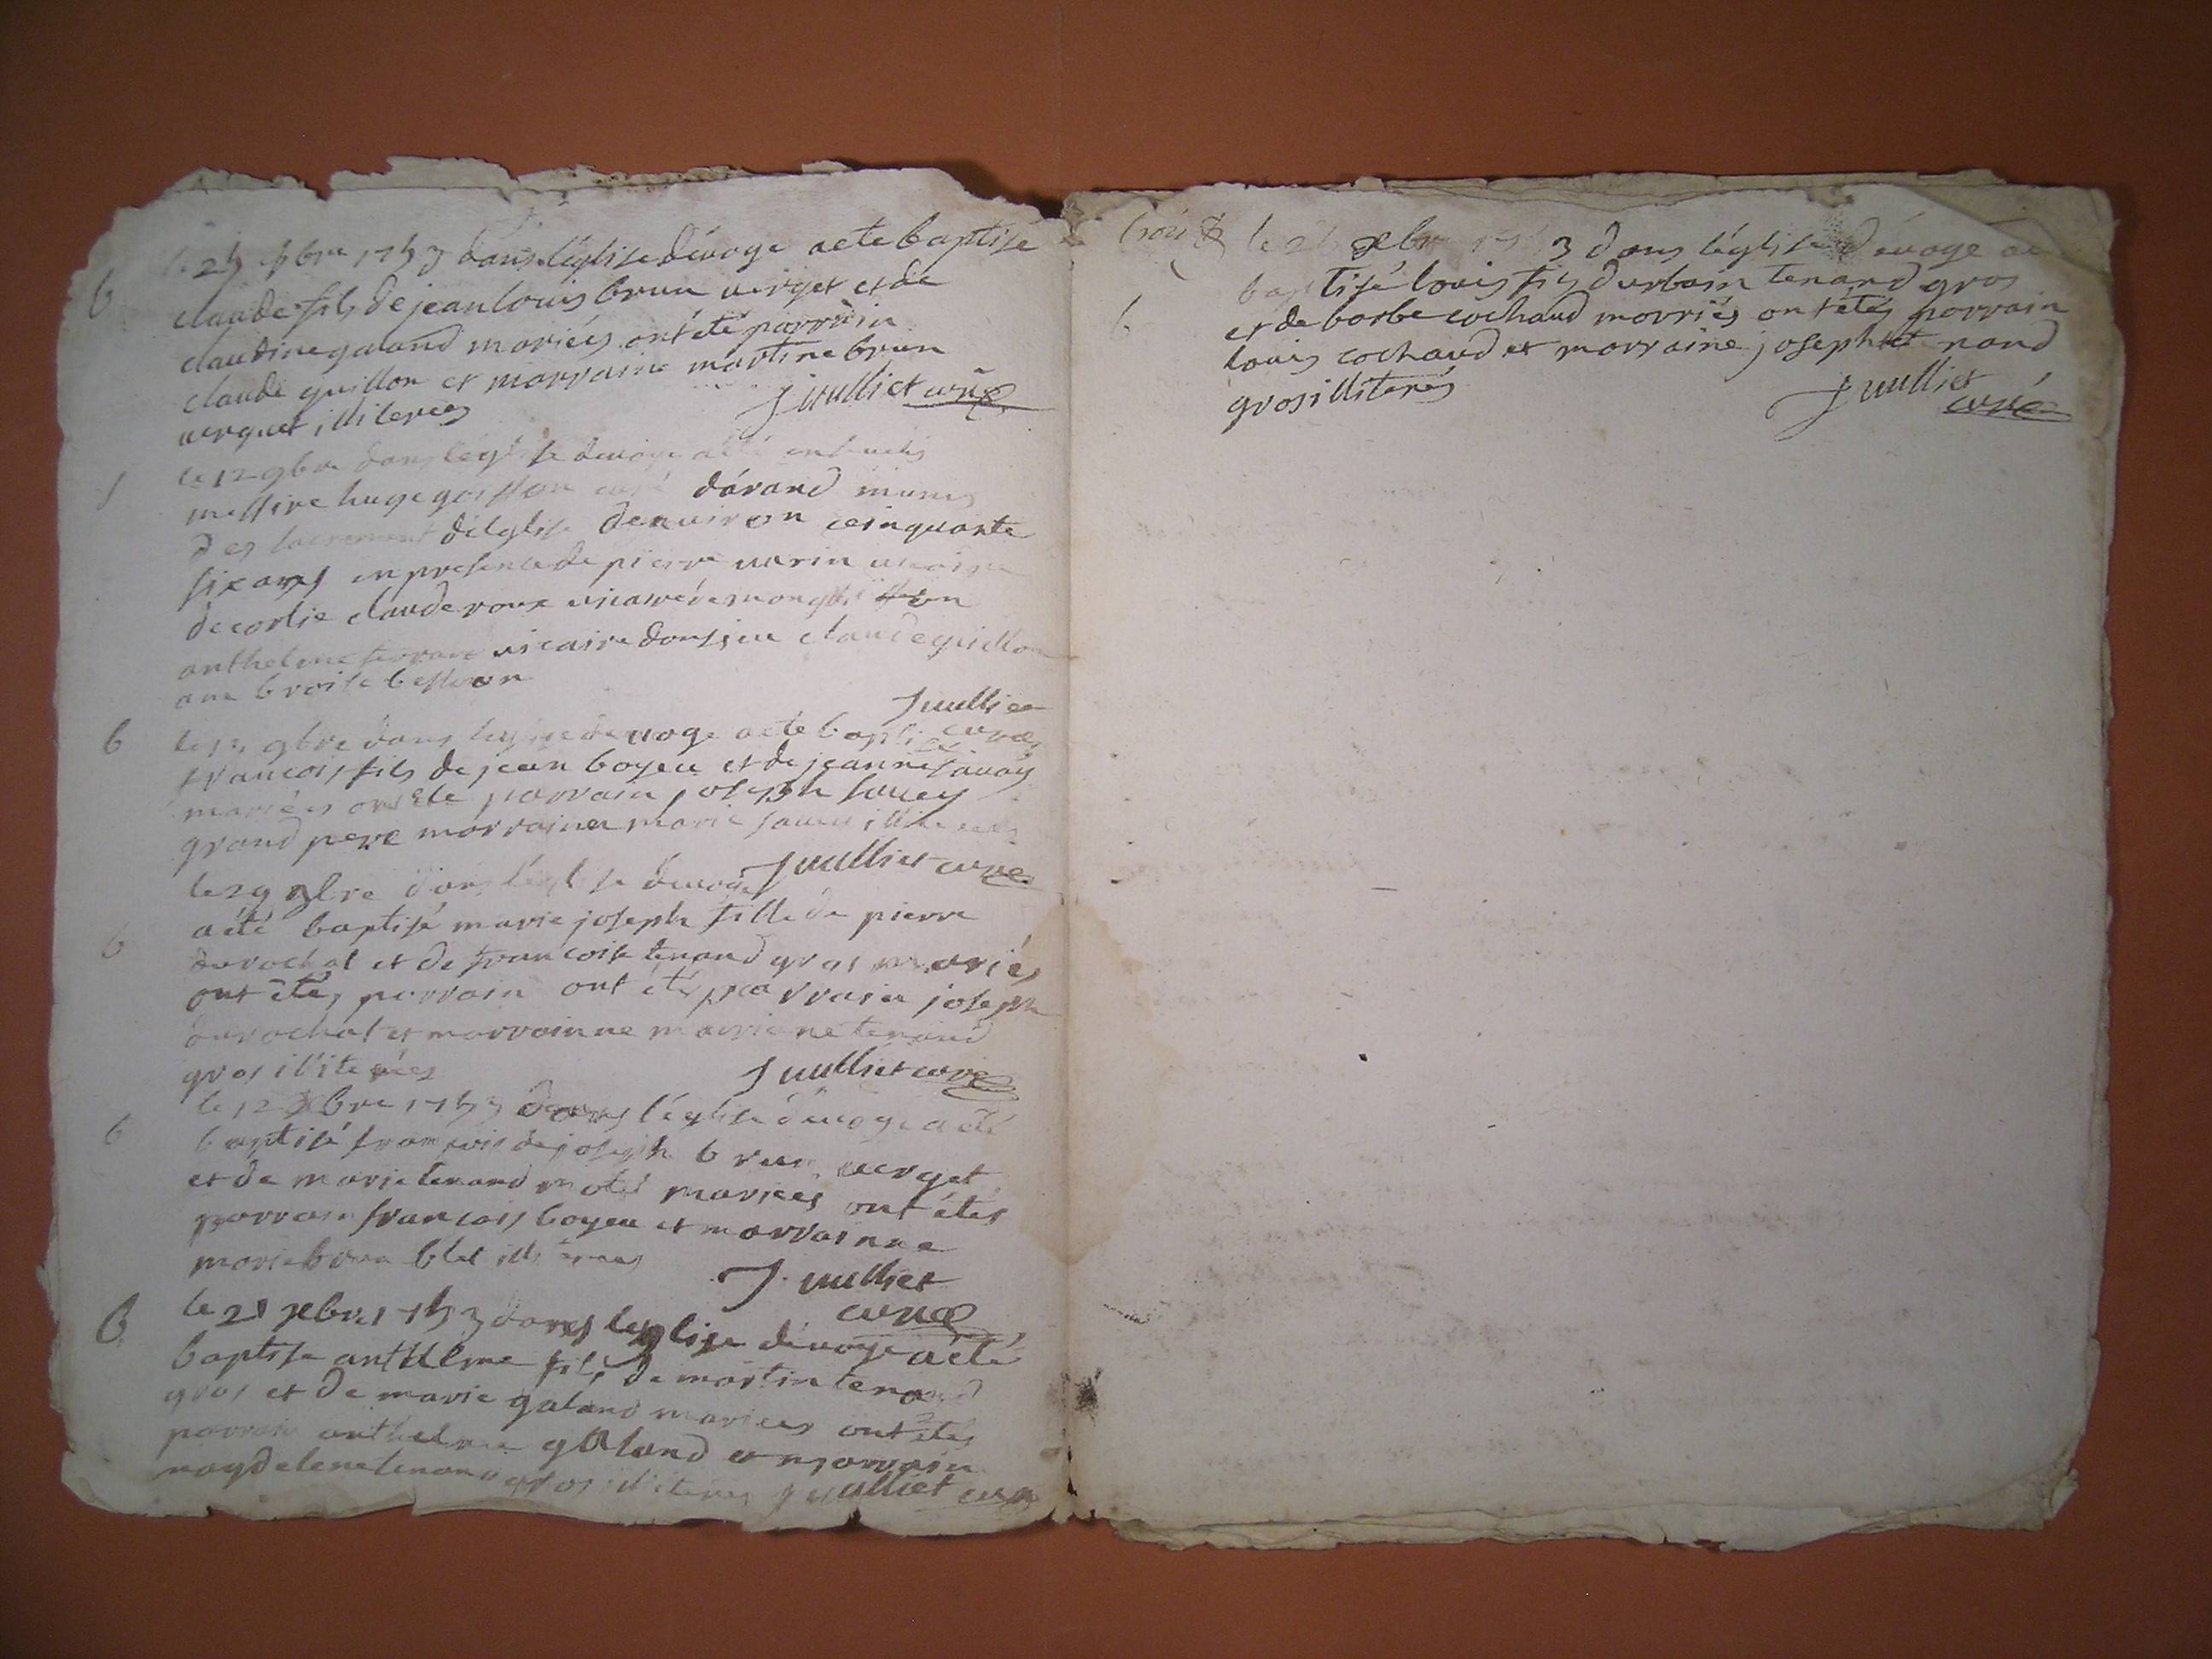 b
le 25 7bre 1753 dans léglise dévoge aete baptisé
claude fils de jean louis brun verget et de
claudine galand mariées ont été parrain
claude guillon et marraine martine brun
verguet illiterées
J vulliet curé
le 12 9bre dans léglise devoge
messire huge goisson curé darand munis
des sacrement déléglise denuiron ceinquante
six ans en presence de pierre varin vicaire
decorlie claude roux vicaire de
anthelme vicaire donsieu claude guillon
J vulliet
curé
b
le 9bre dans devoge aété baptisé
francois fils de jean boyeu et de jeanne sauey
mariées ont été parrain joseph sauey
grand pere marraine marie sauey illiterées
J vulliet curé
le 29 9bre dans léglise devoge
b
aété baptisé marie joseph fille de pierre
durochat et de francoise tenand gros mariés
ont étés parrain ont étés parrain joseph
durochat et marrainne mariene tenand
gros illiterées
J vulliet curé
le 12 xbre 1753 dans léglise devoge aété
b
baptisé francois de joseph brun verget
et de marie tenand motet mariées ont étés
parrain francois boyeu et marrainne
marie brun blet illiterées
J. vulliet
curé
B
le 21 xebre 1753 dans leglise dévoge aété
baptise anthelme fils de martin tenand
gros et de marie galand mariées ont étés
parrain anthelme galand et marrain
magdelene tenand gros illiterés J vulliet curé
le xebre 1753 dans léglise dévoge ae
baptisé louis fils durbain tenand gros
et de barbe cochaud marriés ont étés parrain
louis cochaud et marraine joseph te nand
gros illiterés
J vulliet
curé